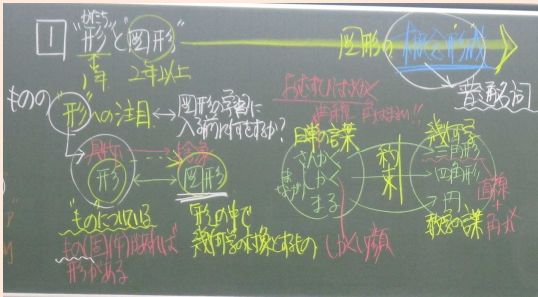 1 "形"と"図形"
かたち
1年 2年以上
図形の概念形成
普通名詞
ものの"形"への注目 ↔ 図形の学習に
入る前に何をするか?
具体 抽象
形 図形
"ものについている"
もの(固体)であれば
形がある
形の中で
幾何学の対象とするもの
日常の言葉
さんかく
しかく
まる
しかくい顔
約束
幾何学
三角形
四角形
円
直線
数学の言葉